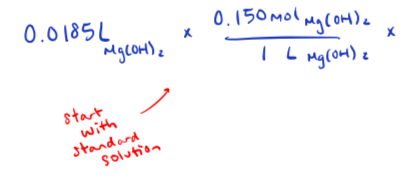 0.0185L Mg(OH)₂ × 0.150 mol Mg(OH)₂ ×
1 L Mg(OH)₂
start
with
standard
solution